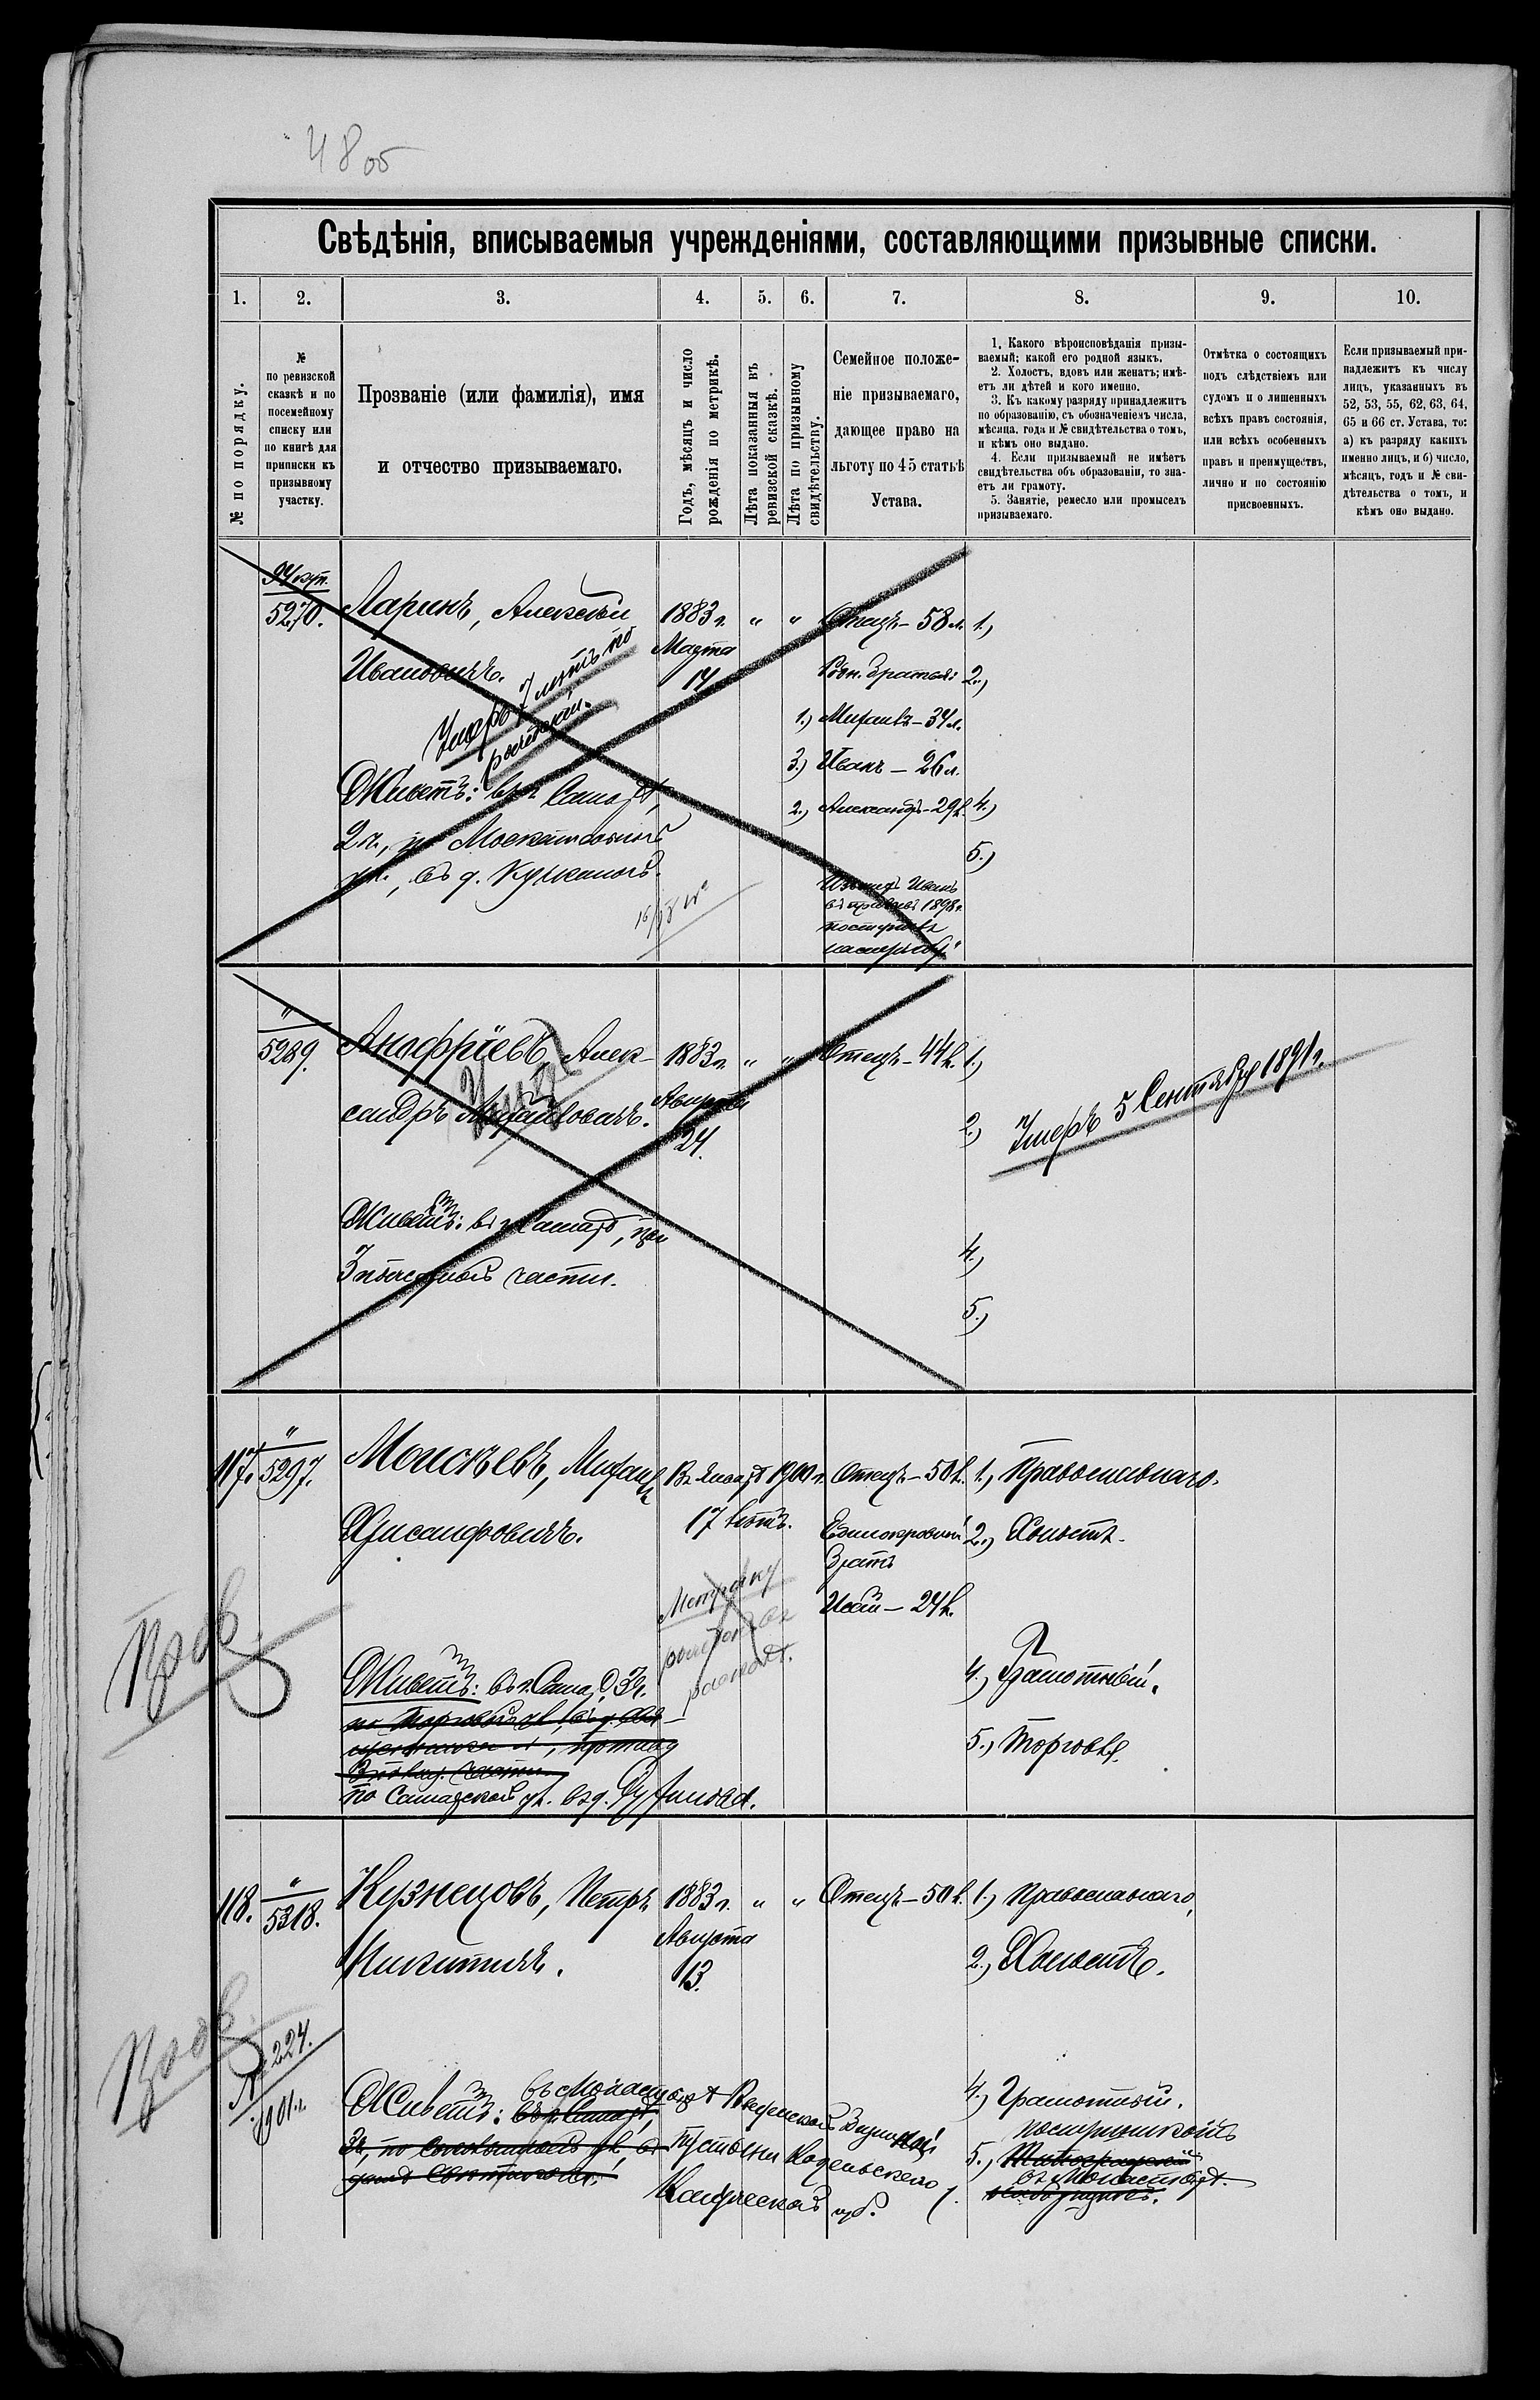 48 об
Свѣдѣнія, вписываемыя учрежденіями, составляющими призывные списки.
1. 2. 3. 4. 5. 6. 7. 8. 9. 10.
№ по порядку.
№
по ревизской
сказкѣ и по
посемейному
списку или
по книгѣ для
приписки къ
призывному
участку.
Прозваніе (или фамилія), имя
и отчество призываемаго.
Годъ, мѣсяцъ и число
рожденія по метрикѣ.
Лѣта показанныя въ
ревизской сказкѣ.
Лѣта по призывному
свидѣтельству.
Семейное положе-
ніе призываемаго,
дающее право на
льготу по 45 статьѣ
Устава.
1. Какого вѣроисповѣданія призы-
ваемый; какой его родной языкъ.
2. Холостъ, вдовъ или женатъ; имѣ-
етъ ли дѣтей и кого именно.
3. Къ какому разряду принадлежитъ
по образованію, съ обозначеніемъ числа,
мѣсяца, года и № свидѣтельства о томъ,
и кѣмъ оно выдано.
4. Если призываемый не имѣетъ
свидѣтельства объ образованіи, то зна-
етъ ли грамоту.
5. Занятіе, ремесло или промыселъ
призываемаго.
Отмѣтка о состоящихъ
подъ слѣдствіемъ или
судомъ и о лишенныхъ
всѣхъ правъ состоянія,
или всѣхъ особенныхъ
правъ и преимуществъ,
лично и по состоянію
присвоенныхъ.
Если призываемый при-
надлежитъ къ числу
лицъ, указанныхъ въ
52, 53, 55, 62, 63, 64,
65 и 66 ст. Устава, то:
а) къ разряду какихъ
именно лицъ, и б) число,
мѣсяцъ, годъ и № сви-
дѣтельства о томъ, и
кѣмъ оно выдано.
5270.
Ларинъ, Алексѣй
Ивановичъ.
1883 г.
Марта
14
" "
Отецъ – 58 л.
Родн. братья:
1.) Михаилъ – 34 л.
3.) Иванъ – 26 л.
2.) Александръ – 29 л.
1.)
2.)
4.)
5.)
Умеръ 7 лѣтъ по
Живетъ: въ г. Самарѣ,
2 ч., по Москательной
ул., въ д.
Иванъ
въ призывъ 1898 г.
"
5289.
Анофріевъ, Алек-
сандръ Михайловичъ.
Умеръ
1883 г.
Августа
24.
" "
Отецъ – 44 л.
1.)
2.)
4.)
5.)
Умеръ 5 Сентября 1891 г.
Живетъ: въ г. Самарѣ, при
3 части.
117.
"
5297.
Моисѣевъ, Михаилъ
Хрисанфовичъ.
Въ Январѣ 1900 г.
17 лѣтъ.
Отецъ – 50 л.
Единокровный
братъ
Исай – 24 л.
1.) Православнаго.
2.) Холостъ.
4.) Грамотный.
5.) Торговля.
Метрику
Пров.
Живетъ: въ г. Самарѣ, 3 ч.
по Самарской ул. въ д.
118.
"
5318.
Кузнецовъ, Петръ
Никитичъ.
1883 г.
Августа
13.
" "
Отецъ – 50 л.
1.) Православнаго,
2.) Холостъ.
4.) Грамотный.
5.)
въ Монастырѣ.
Пров.
№ 224.
1901 г.
Живетъ: въ Монастырѣ
въ г. Самарѣ,
Пустыни Козельского
Калужской губ.